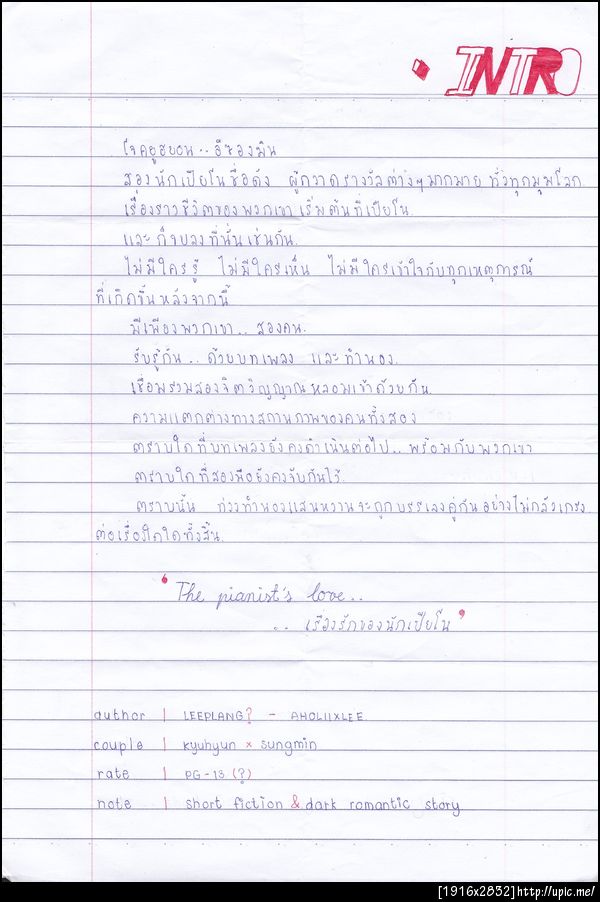 INTRO
โจคยูฮยอน.. อีซองมิน
สองนักเปียโนชื่อดัง ผู้กวาดรางวัลต่างๆมากมาย ทั่วทุกมุมโลก
เรื่องราวชีวิตของพวกเขา เริ่มต้นที่เปียโน
และ ก็จบลงที่นั่นเช่นกัน.
ไม่มีใครรู้ ไม่มีใครเห็น ไม่มีใครเข้าใจกับทุกเหตุการณ์
ที่เกิดขึ้นหลังจากนี้
มีเพียงพวกเขา.. สองคน.
รับรู้กัน.. ด้วยบทเพลง และทำนอง.
เชื่อมรวมสองจิตวิญญาณหลอมเข้าด้วยกัน.
ความแตกต่างทางสถานภาพของคนทั้งสอง
ตราบใดที่บทเพลงยังคงดำเนินต่อไป.. พร้อมกับพวกเขา
ตราบใดที่สองมือยังคงจับกันไว้.
ตราบนั้น ท่วงทำนองแสนหวานจะถูกบรรเลงคู่กัน อย่างไม่กลัวเกรง
ต่อเรื่องใดใดทั้งสิ้น.
' The pianist's love..
.. เรื่องรักของนักเปียโน '
author | LEEPLANG? - AHOLIIXLEE
couple | kyuhyun × sungmin
rate | PG-13 (?)
note | short fiction & dark romantic story
[1916x2832]http://upic.me/